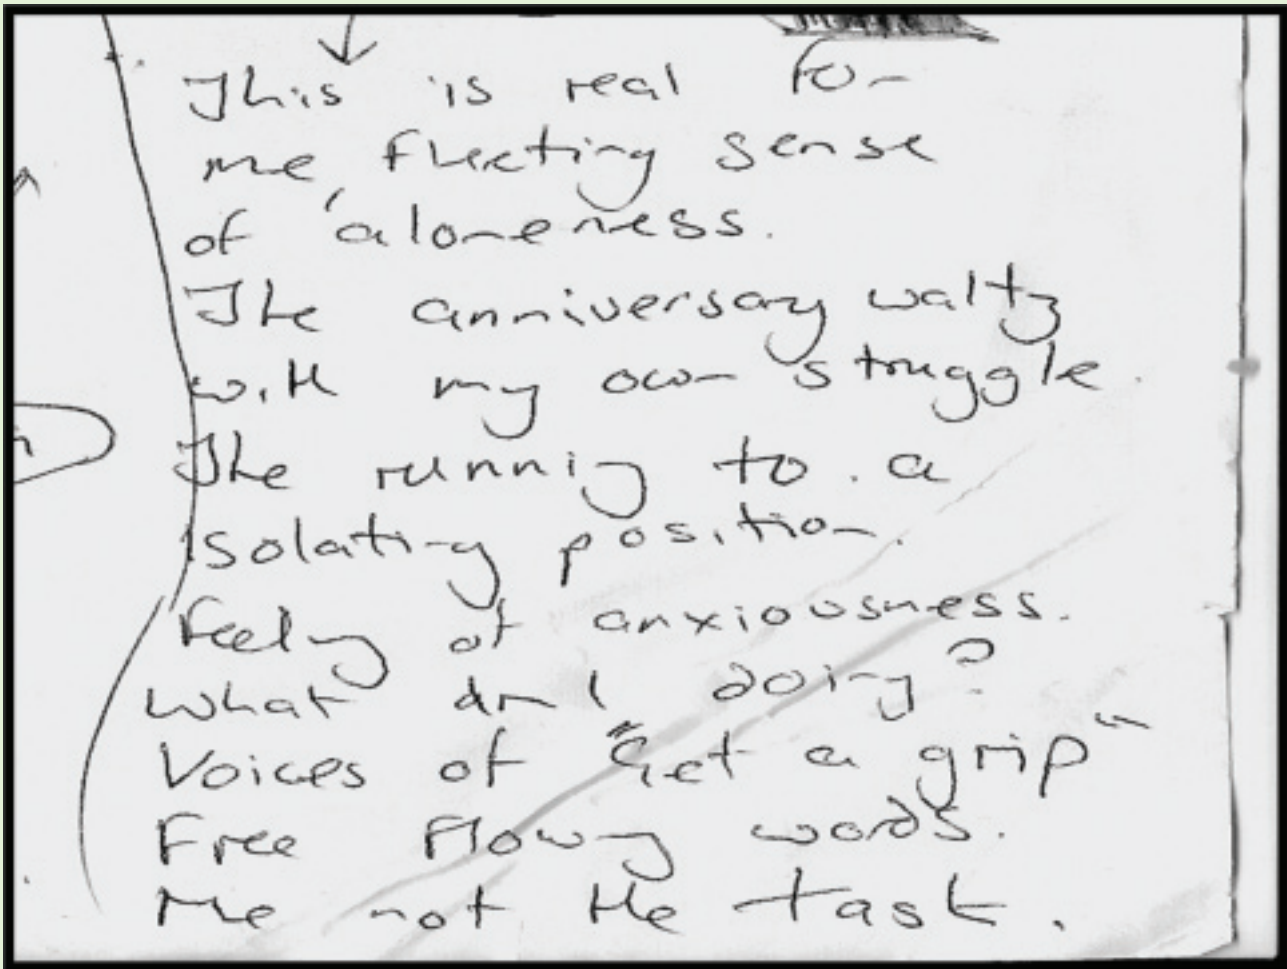 This is real for
me, fleeting sense
of 'aloneness.
The anniversary waltz
with my own struggle.
The running to a
isolating position.
Feeling of anxiousness.
What am I doing?
Voices of "Get a grip"
Free flowing words.
Me not the task.